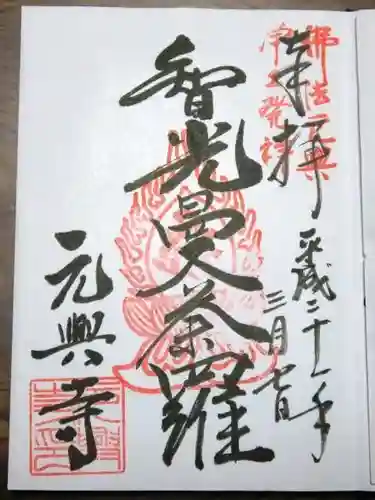 奉拝
平成二十一年
三月七日
智光曼荼羅
元興寺